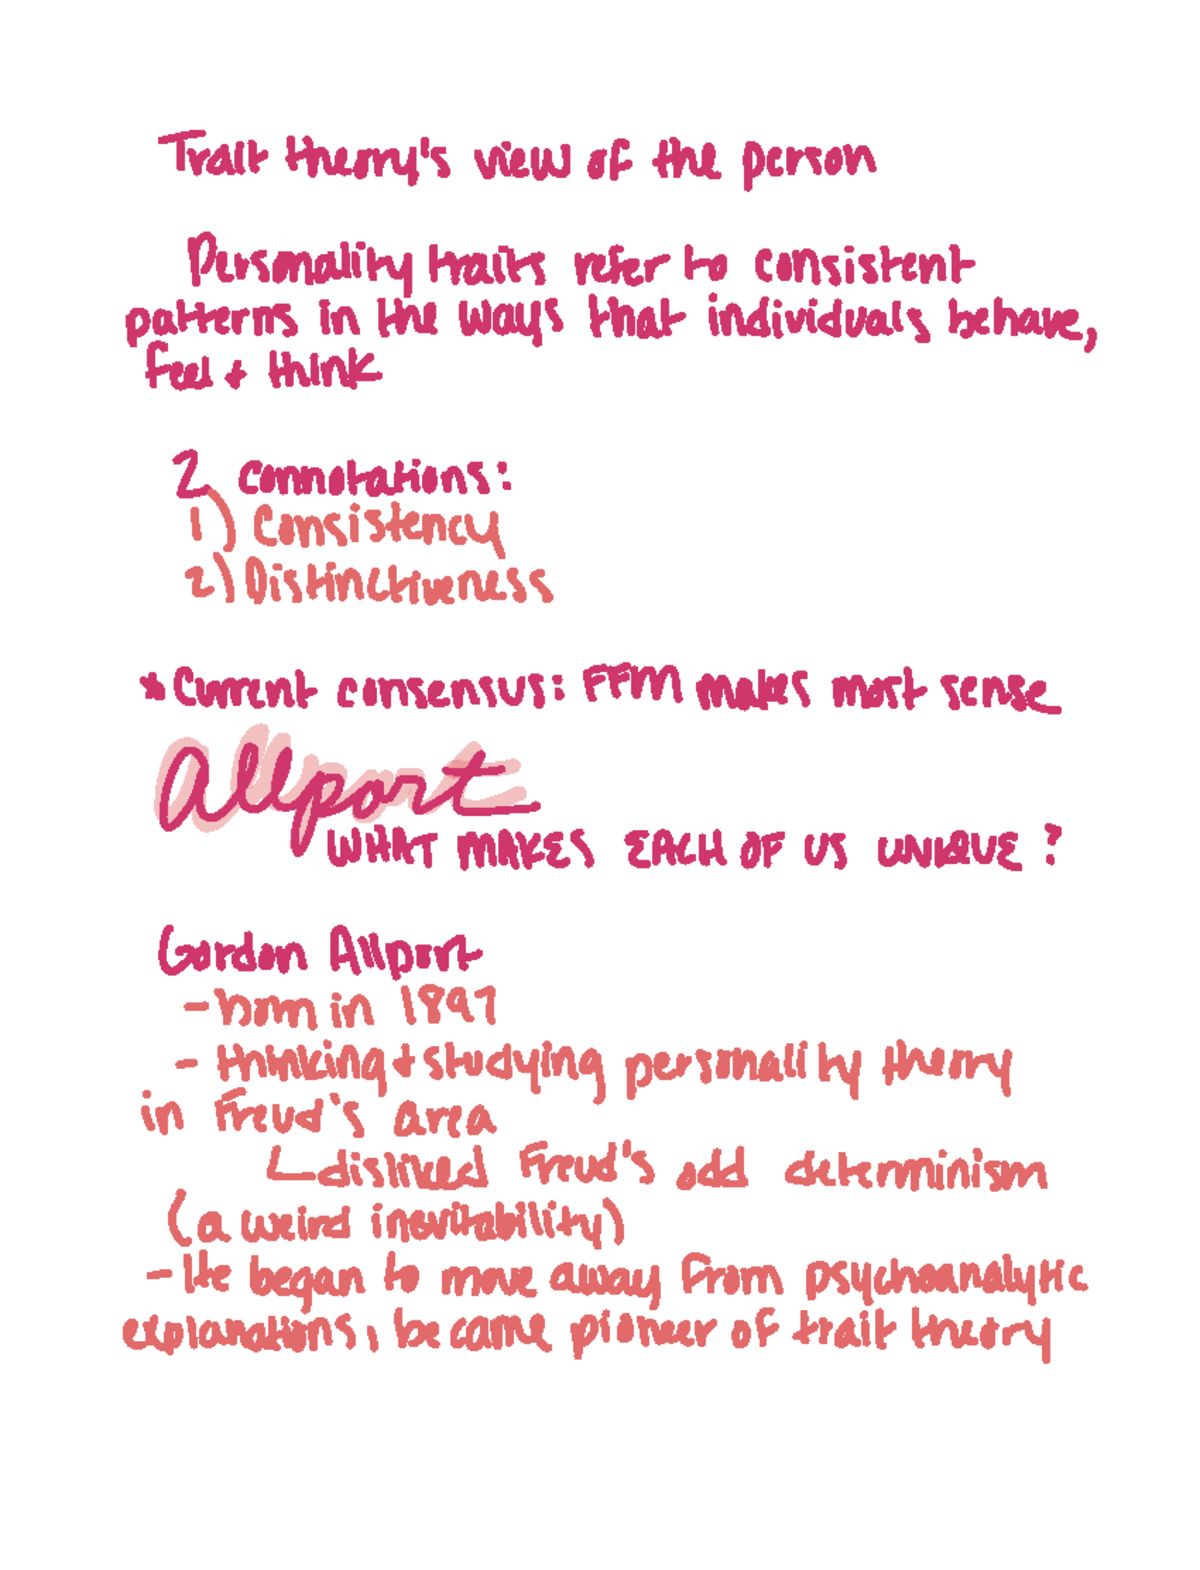 Trait theory's view of the person
Personality traits refer to consistent
patterns in the ways that individuals behave,
feel + think
2 connotations:
1) Consistency
2) Distinctiveness
* Current consensus: FFM makes most sense
Allport
WHAT MAKES EACH OF US UNIQUE?
Gordon Allport
- born in 1897
- thinking + studying personality theory
in Freud's area
disliked Freud's odd determinism
(a weird inevitability)
- He began to move away from psychoanalytic
explanations, became pioneer of trait theory